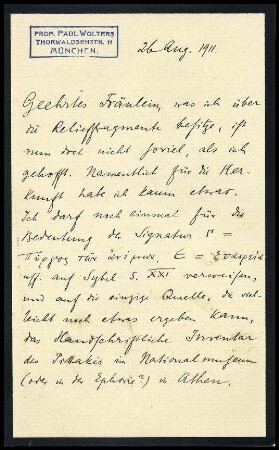 PROF. PAUL WOLTERS
THORWALDSENSTR. 11
MÜNCHEN.
26 Aug. 1911.
Geehrtes Fräulein, was ich über
die Relieffragmente besitze, ist
nun doch nicht soviel, als ich
gehofft. Namentlich für die Her-
kunft habe ich kaum etwas.
Ich darf noch einmal für die
Bedeutung der Signatur Γ =
Πύργος τῶν Ἀνέμων, Ε =
auf Sybel S. XXI verweisen,
und auf die einzige Quelle, die viel-
leicht noch etwas ergeben kann,
das Handschriftliche Inventar
des Pittakis im Nationalmuseum
(oder in der Ephorie?) in Athen.